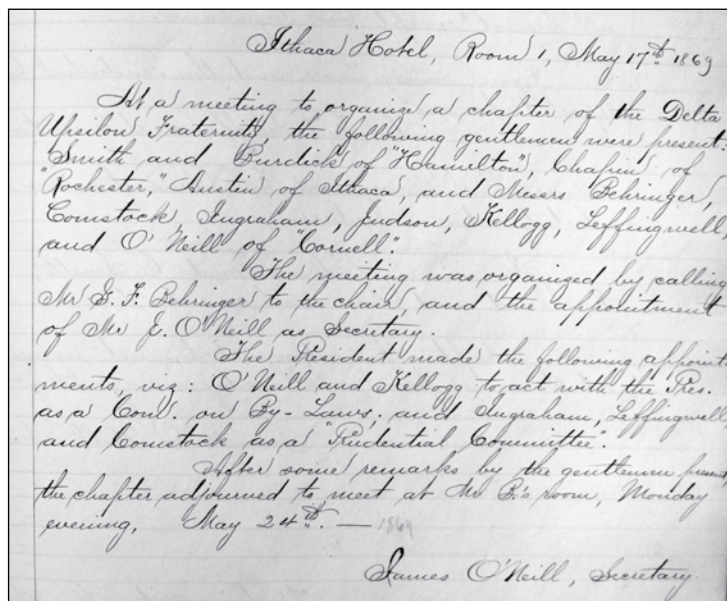 Ithaca Hotel, Room 1, May 17th 1869
At a meeting to organize a chapter of the Delta
Upsilon Fraternity, the following gentlemen were present:
Smith and Burdick of "Hamilton", Chapin of
"Rochester," Austin of Ithaca, and Messrs Behringer,
Comstock Ingraham, Judson, Kellogg, Leffingwell,
and O'Neill of "Cornell".
The meeting was organized by calling
Mr G. F. Behringer to the chair, and the appointment
of Mr J. O'Neill as Secretary.
The President made the following appoint-
ments, viz: O'Neill and Kellogg to act with the Pres.
as a Com. on By-Laws; and Ingraham, Leffingwell,
and Comstock as a "Prudential Committee".
After some remarks by the gentlemen present,
the chapter adjourned to meet at Mr B's room, Monday
evening, May 24th. — 1869
James O'Neill, Secretary